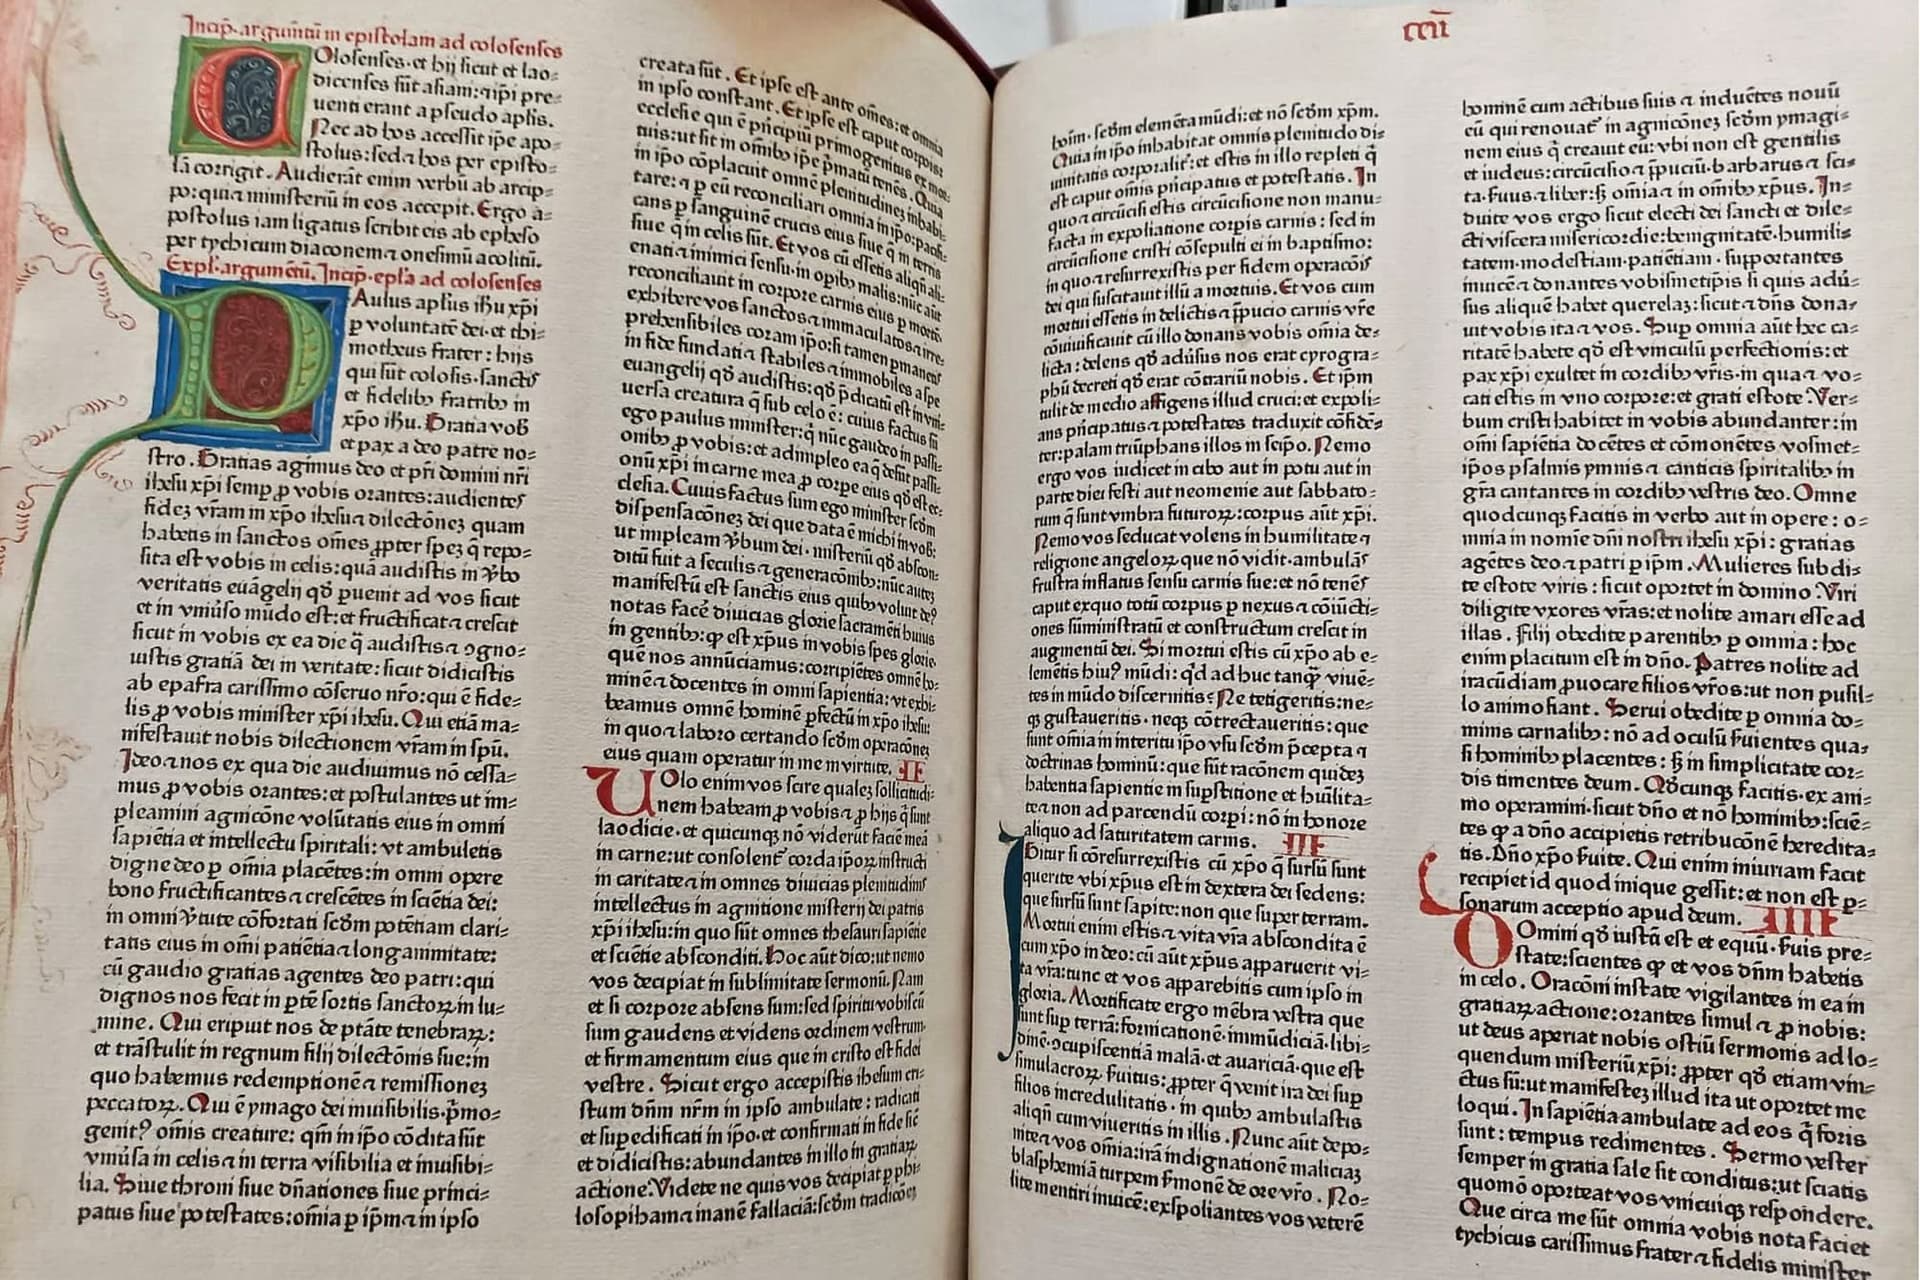 Incip̄·argumētū in epistolam ad colosenses
COlosenses·et hij sicut et lao=
dicenses sūt asiani:⁊ip̄i pre=
uenti erant a pseudo aplīs.
Nec ad hos accessit ip̄e apo=
stolus:sed⁊hos per episto=
lā corrigit. Audierāt enim verbū ab arcip=
po:qui⁊ministeriū in eos accepit. Ergo a=
postolus iam ligatus scribit eis ab epheso
per tychicum diaconem⁊onesimū acolitū.
Expl̄·argumētū. Incip̄·epl̄a ad colosenses
PAulus apl̄us ihū xp̄i
ꝑ voluntatē dei·et thi=
motheus frater: hijs
qui sūt colosis·sanctis
et fidelibꝫ fratribꝫ in
xp̄o ihū. Gratia vob̄
et pax a deo patre no=
stro. Gratias agimus deo et pr̄i domini nr̄i
ihesu xp̄i semꝑ ꝓ vobis orantes:audientes
fidez vr̄am in xp̄o ihesu⁊dilectōnez quam
habetis in sanctos om̄es ꝓpter spez q̄ repo=
sita est vobis in celis:quā audistis in v̓bo
veritatis euāgelij qd̄ ꝑuenit ad vos sicut
et in vniũso mūdo est:et fructificat⁊crescit
sicut in vobis ex ea die q̄ audistis⁊ꝯgno=
uistis gratiā dei in veritate: sicut didicistis
ab epafra carissimo cōseruo nr̄o:qui ē fide=
lis ꝓ vobis minister xp̄i ihesu. Qui etiā ma=
nifestauit nobis dilectionem vr̄am in sp̄u.
Ideo⁊nos ex qua die audiuimus nō cessa=
mus ꝓ vobis orantes:et postulantes ut im=
pleamini agnicōne volūtatis eius in omni
sapiētia et intellectu spiritali: vt ambuletis
digne deo ꝑ om̄ia placētes:in omni opere
bono fructificantes⁊crescētes in sciētia dei:
in omni v̓tute cōfortati scd̄m potētiam clari=
tatis eius in om̄i patiētia⁊longanimitate:
cū gaudio gratias agentes deo patri:qui
dignos nos fecit in ꝑtē sortis sanctoꝝ in lu=
mine. Qui eripuit nos de ptāte tenebraꝝ:
et trāstulit in regnum filij dilectōnis sue:in
quo habemus redemptionē⁊remissionez
peccatoꝝ. Qui ē ymago dei inuisibilis·p̄mo=
genit̓ om̄is creature: qm̄ in ip̄o cōdita sūt
vniũsa in celis⁊in terra visibilia et inuisibi=
lia. Siue throni siue dn̄ationes siue princi=
patus siue potestates:om̄ia ꝑ ip̄m⁊in ipso
creata sūt. Et ipse est ante om̄es:et omnia
in ipso constant. Et ipse est caput corpoīs
ecclesie qui ē pn̄cipiū primogenitus ex mor=
tuis:ut sit in om̄ibꝫ ip̄e p̄matū tenēs. Quia
in ip̄o cōplacuit omnē plenitudinez inhabi=
tare:⁊ ꝑ eū reconciliari omnia in ip̄o:pacifi=
cans ꝑ sanguinē crucis eius siue q̄ in terris
siue q̄ in celis sūt. Et vos cū essetis aliqn̄ ali=
enati⁊inimici sensu·in opibꝫ malis:nūc aūt
reconciliauit in corpore carnis eius ꝑ mortē
exhibere vos sanctos⁊immaculatos⁊irre=
prehensibiles coram ip̄o:si tamen ꝑmanetis
in fide fundati⁊ stabiles⁊immobiles a spe
euangelij qd̄ audistis:qd̄ p̄dicatū est in vni=
uersa creatura q̄ sub celo ē: cuius factus sū
ego paulus minister:q̄ nūc gaudeo in passi=
onibꝫ ꝓ vobis:et adimpleo ea q̄ desūt passi=
onū xp̄i in carne mea ꝓ corpe eius qd̄ est ec=
clesia. Cuius factus sum ego minister scd̄m
dispensacōnez dei que data ē michi in vob̄:
ut impleam v̓bum dei·misteriū qd̄ abscon=
ditū fuit a seculis⁊generacōnibꝫ:nūc autez
manifestū est sanctis eius quibꝫ voluit de⁹
notas facē diuicias glorie sacramēti huius
in gentibꝫ:qꝫ est xp̄us in vobis spes glorie·
quē nos annūciamus:corripiētes omnē ho=
minē⁊docentes in omni sapientia:vt exhi=
beamus omnē hominē ꝑfectū in xp̄o ihesu:
in quo⁊laboro certando scd̄m operacōnez
eius quam operatur in me in virtute. II
UOlo enim vos scire qualez sollicitudi=
nem habeam ꝓ vobis⁊ꝓ hijs q̄ sunt
laodicie·et quicunqꝫ nō viderūt faciē meā
in carne:ut consolent̄ corda ip̄oꝝ instructi
in caritate⁊in omnes diuicias plenitudinis
intellectus in agnitione misterij dei patris
xp̄i ihesu:in quo sūt omnes thesauri sapiētie
et sciētie absconditi. Hoc aūt dico:ut nemo
vos decipiat in sublimitate sermonū. Nam
et si corpore absens sum:sed spiritu vobiscū
sum gaudens et videns ordinem vestrum·
et firmamentum eius que in cristo est fidei
vestre. Sicut ergo accepistis ihesum cri=
stum dn̄m nr̄m in ipso ambulate: radicati
et suꝑedificati in ip̄o·et confirmati in fide sic̄
et didicistis:abundantes in illo in gratiaꝝ
actione:Videte ne quis vos decipiat ꝑ phi=
losophiam⁊inanē fallaciā:scd̄m tradicōez
ccii
hoīm·scd̄m elemēta mūdi:et nō scd̄m xp̄m.
Quia in ip̄o inhabitat omnis plenitudo di=
uinitatis corporalit̄:et estis in illo repleti q̄
est caput om̄is pn̄cipatus et potestatis. In
quo⁊circūcisi estis circūcisione non manu
facta in expoliatione corp̄is carnis: sed in
circūcisione cristi cōsepulti ei in baptismo:
in quo⁊resurrexistis per fidem operacōis
dei qui suscitauit illū a mortuis. Et vos cum
mortui essetis in delictis⁊p̄pucio carnis vr̄e
cōuiuificauit cū illo donans vobis om̄ia de=
licta: delens qd̄ adũsus nos erat cyrogra=
phū decreti qd̄ erat cōtrariū nobis. Et ip̄m
tulit de medio affigens illud cruci:et expoli=
ans pn̄cipatus⁊potestates traduxit cōfidē=
ter:palam triūphans illos in seip̄o. Nemo
ergo vos iudicet in cibo aut in potu aut in
parte diei festi aut neomenie aut sabbato=
rum q̄ sunt vmbra futuroꝝ:corpus aūt xp̄i.
Nemo vos seducat volens in humilitate⁊
religione angeloꝝ que nō vidit·ambulās
frustra inflatus sensu carnis sue:et nō tenēs
caput ex quo totū corpus ꝑ nexus⁊cōiūcti=
ones sūministratū et constructum crescit in
augmentū dei. Si mortui estis cū xp̄o ab e=
lemētis hui⁹ mūdi: qd̄ ad huc tanqꝫ viuē=
tes in mūdo discernitis? Ne tetigeritis:ne=
qꝫ gustaueritis·neqꝫ cōtrectaueritis: que
sunt om̄ia in interitū ip̄o vsu scd̄m p̄cepta ⁊
doctrinas hominū: que sūt racōnem quidez
habentia sapientie in suꝑstitione et hūilita=
te⁊non ad parcendū corpi: nō in honore
aliquo ad saturitatem carnis. III
IGitur si cōresurrexistis cū xp̄o q̄ sursū sunt
querite vbi xp̄us est in dextera dei sedens:
que sursū sunt sapite:non que super terram.
Mortui enim estis⁊vita vr̄a abscondita ē
cum xp̄o in deo:cū aūt xp̄us apparuerit vi=
ta vr̄a:tunc et vos apparebitis cum ipso in
gloria. Mortificate ergo mēbra vestra que
sunt suꝑ terrā:fornicationē·immūdiciā·libi=
dinē·ꝯcupiscentiā malā·et auariciā·que est
simulacroꝝ s̓uitus: ꝓpter q̄ venit ira dei suꝑ
filios incredulitatis·in quibꝫ⁊ambulastis
aliqn̄ cum viueritis in illis. Nunc aūt depo=
nite⁊vos om̄ia:irā indignationē maliciaz
blasphemiā turpem s̓monē de ore vr̄o. No=
lite mentiri inuicē: exspoliantes vos veterē
hominē cum actibus suis ⁊ induētes nouū
eū qui renouat̄ in agnicōnez scd̄m ymagi=
nem eius q̄ creauit eū: vbi non est gentilis
et iudeus:circūcisio⁊p̄puciū·barbarus⁊sci=
ta·s̓uus⁊liber:sꝫ om̄ia⁊in om̄ibꝫ xp̄us. In=
duite vos ergo sicut electi dei sancti et dile=
cti viscera misericordie:benignitatē·humili=
tatem·modestiam·patiētiam·supportantes
inuicē⁊donantes vobismetip̄is si quis adũ=
sus aliquē habet querelaz:sicut⁊dn̄s dona=
uit vobis ita⁊vos. Suꝑ omnia aūt hec ca=
ritatē habete qd̄ est vinculū perfectionis:et
pax xp̄i exultet in cordibꝫ vr̄is·in qua⁊ vo=
cati estis in vno corpore:et grati estote. Ver=
bum cristi habitet in vobis abundanter:in
om̄i sapiētia docētes et cōmonētes vosmet=
ip̄os psalmis ymnis⁊ canticis spiritalibꝫ in
grā cantantes in cordibꝫ vestris deo. Omne
quodcunqꝫ facitis in verbo aut in opere: o=
mnia in nomīe dn̄i nostri ihesu xp̄i: gratias
agētes deo⁊patri ꝑ ip̄m. Mulieres subdi=
te estote viris: sicut oportet in domino. Viri
diligite vxores vr̄as:et nolite amari esse ad
illas. Filij obedite parentibꝫ ꝑ omnia: hoc
enim placitum est in dn̄o. Patres nolite ad
iracūdiam ꝓuocare filios vr̄os:ut non pusil=
lo animo fiant. Serui obedite ꝑ omnia do=
minis carnalibꝫ: nō ad oculū s̓uientes quasi
hominibꝫ placentes: sꝫ in simplicitate cor=
dis timentes deum. Qd̄cunqꝫ facitis·ex ani=
mo operamini·sicut dn̄o et nō hominibꝫ:sciē=
tes qꝫ a dn̄o accipietis retribucōnē hereditа=
tis. Dn̄o xp̄o s̓uite. Qui enim iniuriam facit
recipiet id quod inique gessit: et non est ꝑ=
sonarum acceptio apud deum. IIII
DOmini qd̄ iustū est et equū·s̓uis pre=
state:scientes qꝫ et vos dn̄m habetis
in celo. Oracōni instate vigilantes in ea in
gratiaꝝ actione:orantes simul ⁊ ꝓ nobis:
ut deus aperiat nobis ostiū sermonis ad lo=
quendum misteriū xp̄i: ꝓpter qd̄ etiam vin=
ctus sū:ut manifestez illud ita ut oportet me
loqui. In sapiētia ambulate ad eos q̄ foris
sunt: tempus redimentes. Sermo vester
semper in gratia sale sit conditus:ut sciatis
quomō oporteat vos vnicuiqꝫ respondere.
Que circa me sūt omnia vobis nota faciet
tychicus carissimus frater⁊fidelis minister